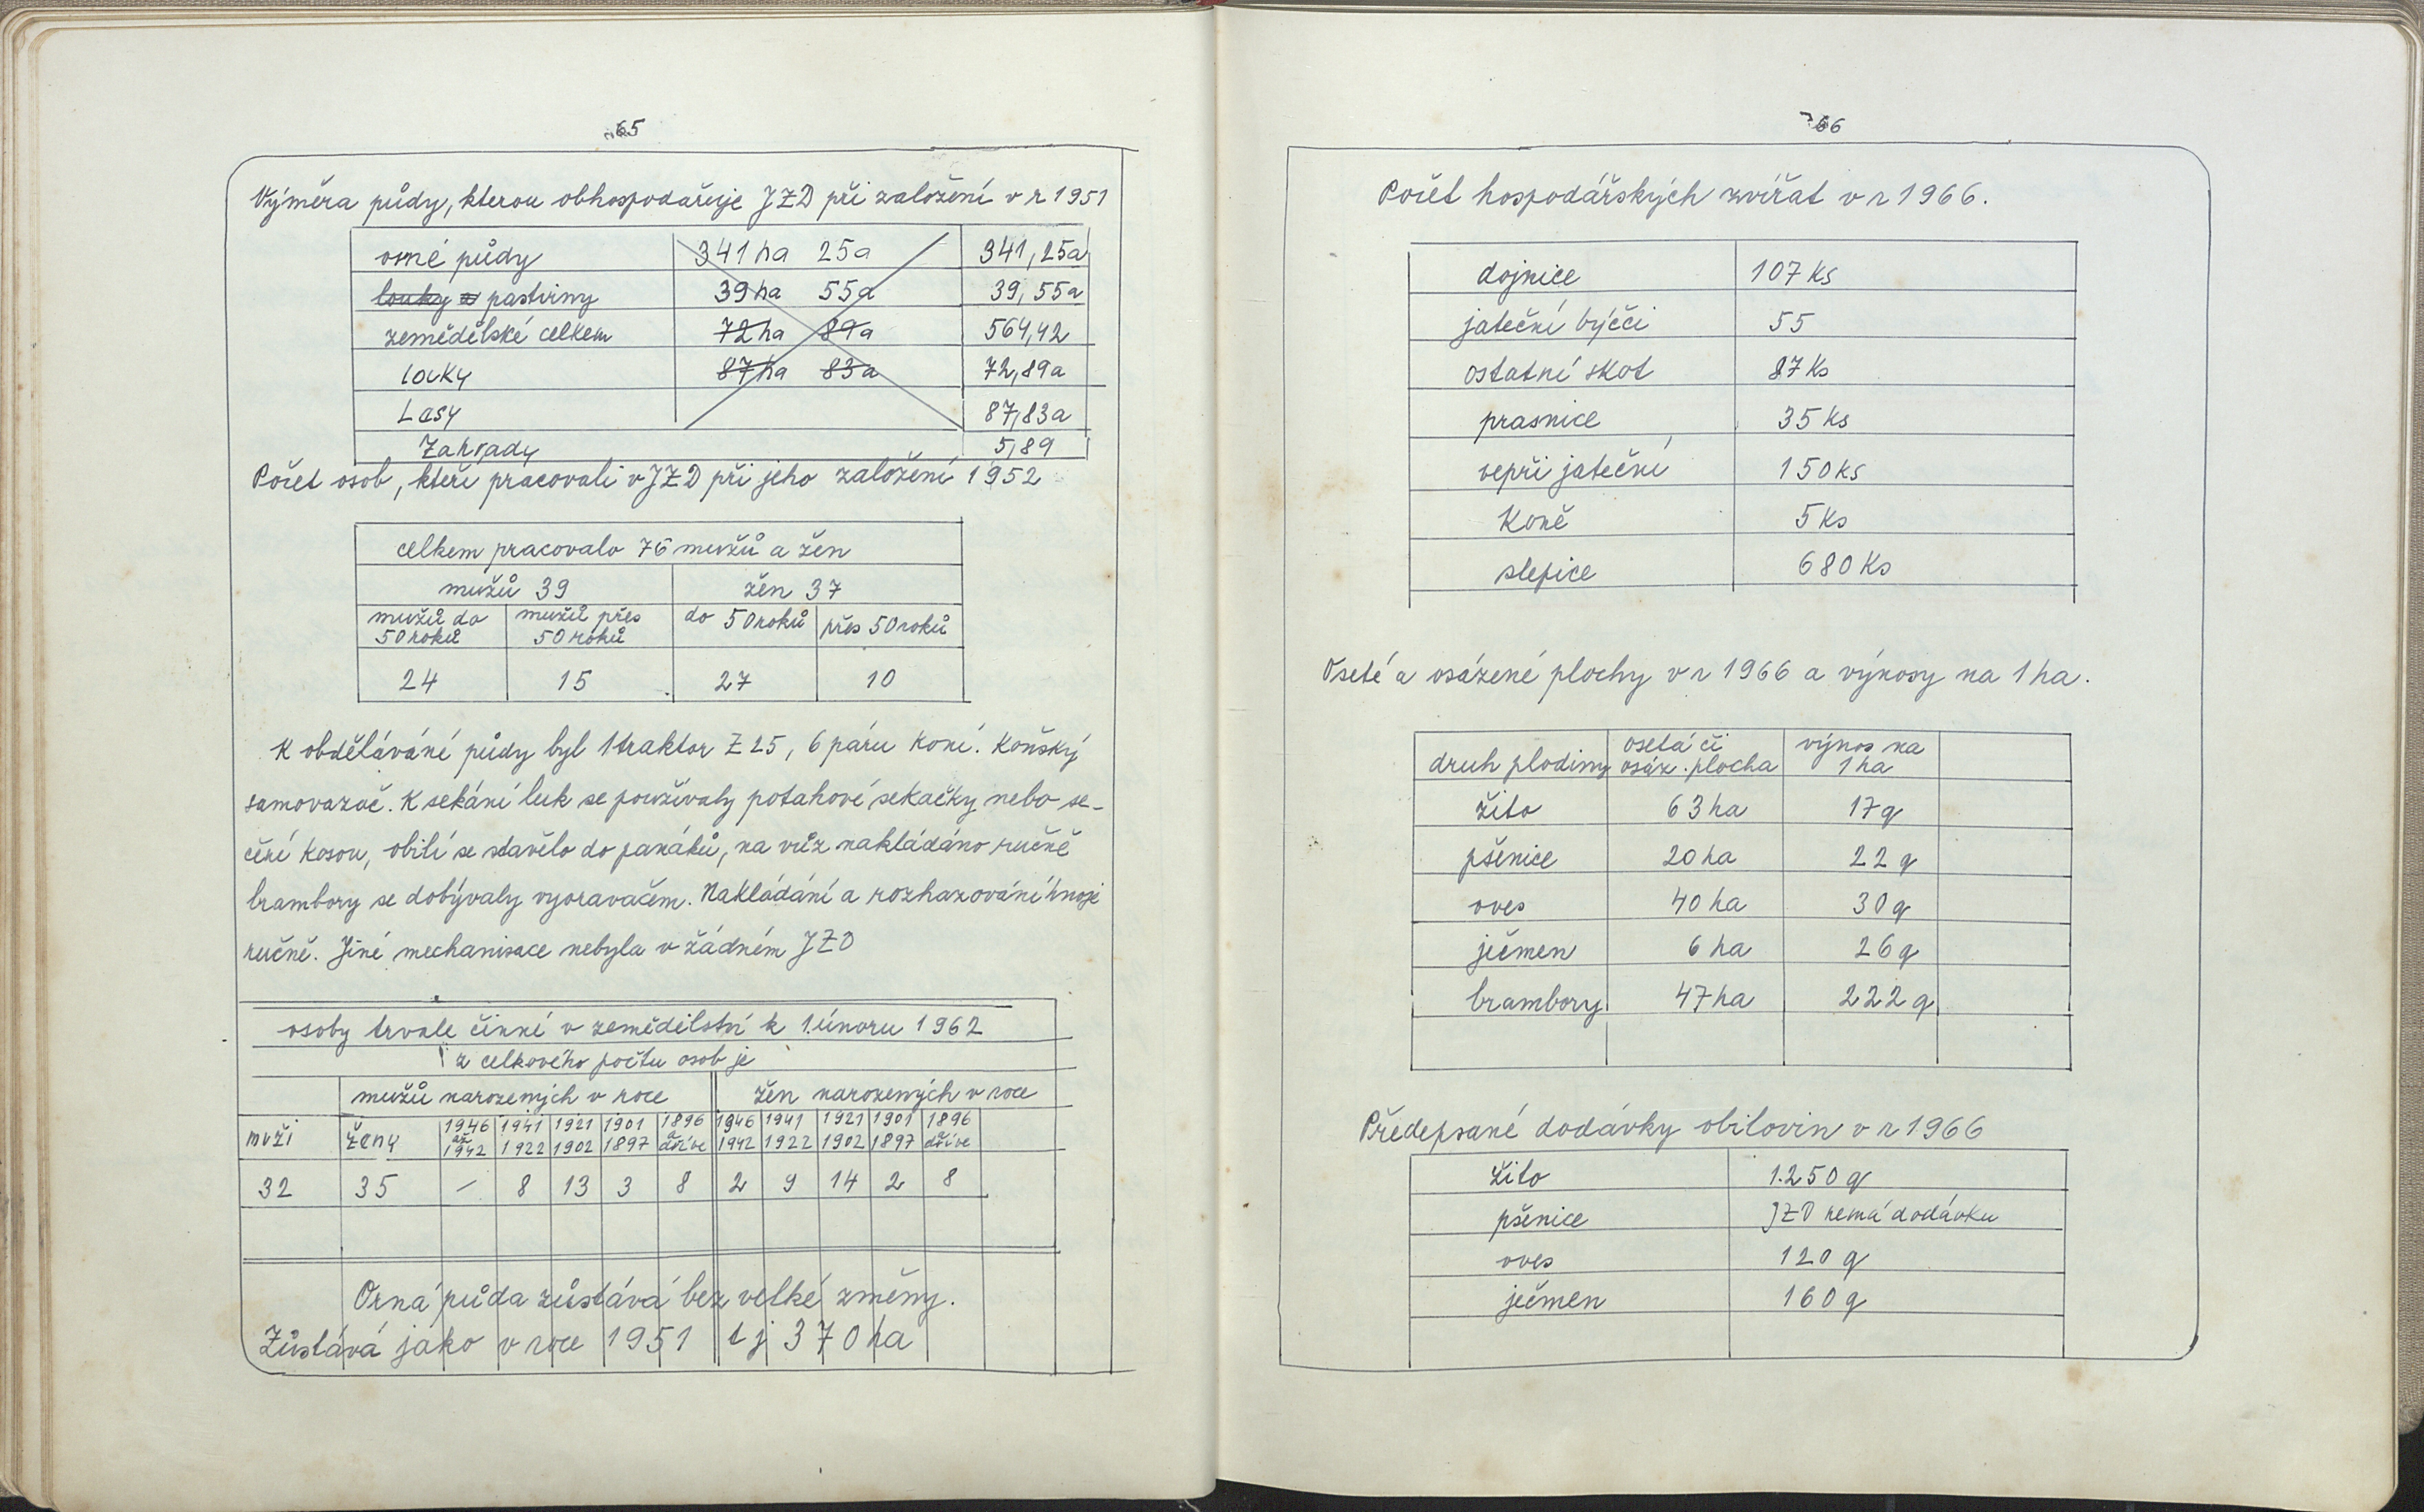 65
Výměra půdy, kterou obhospodařuje JZD při založení v r 1951
orné půdy 341 ha 25a 341,25a
louky a pastviny 39 ha 55a 39,55a
zemědělské celkem 72 ha 89a 564,42
louky 87 ha 83a 72,89a
Lesy 87,83a
Zahrady 5,89
Počet osob, kteří pracovali v JZD při jeho založení 1952
celkem pracovalo 76 mužů a žen
mužů 39 žen 37
mužů do 50 roků mužů přes 50 roků do 50 roků přes 50 roků
24 15 27 10
K obdělávání půdy byl 1 traktor Z 25, 6 páru koní. Koňský
samovazač. K sekání luk se používaly potahové sekačky nebo se-
čění kosou, obilí se stavělo do panáků, na vůz nakládáno ručně
brambory se dobývaly vyoravačem. Nakládání a rozhazování hnoje
ručně. Jiné mechanisace nebyla v žádném JZD
osoby trvale činné v zemědělství k 1. únoru 1962
z celkového počtu osob je
mužů narozených v roce žen narozených v roce
muži ženy 1946 až 1942 1941 1922 1921 1902 1901 1897 1896 a dříve 1946 1942 1941 1922 1921 1902 1901 1897 1896 a dříve
32 35 – 8 13 3 8 2 9 14 2 8
Orná půda zůstává bez velké změny.
Zůstává jako v roce 1951 tj 370 ha
66
Počet hospodářských zvířat v r 1966.
dojnice 107 ks
jateční býčci 55
ostatní skot 87 ks
prasnice 35 ks
vepři jateční 150 ks
Koně 5 ks
slepice 680 ks
Oseté a osázené plochy v r 1966 a výnosy na 1 ha.
druh plodiny osetá či osáz. plocha výnos na 1 ha
žito 63 ha 17 q
pšenice 20 ha 22 q
oves 40 ha 30 q
ječmen 6 ha 26 q
brambory 47 ha 222 q
Předepsané dodávky obilovin v r 1966
žito 1.250 q
pšenice JZD nemá dodávku
oves 120 q
ječmen 160 q